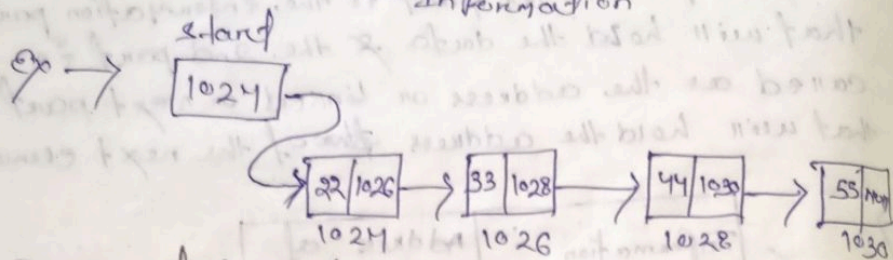 Information
start
Ex →
1024
22 1026 33 1028 44 1030 55 Null
1024 1026 1028 1030